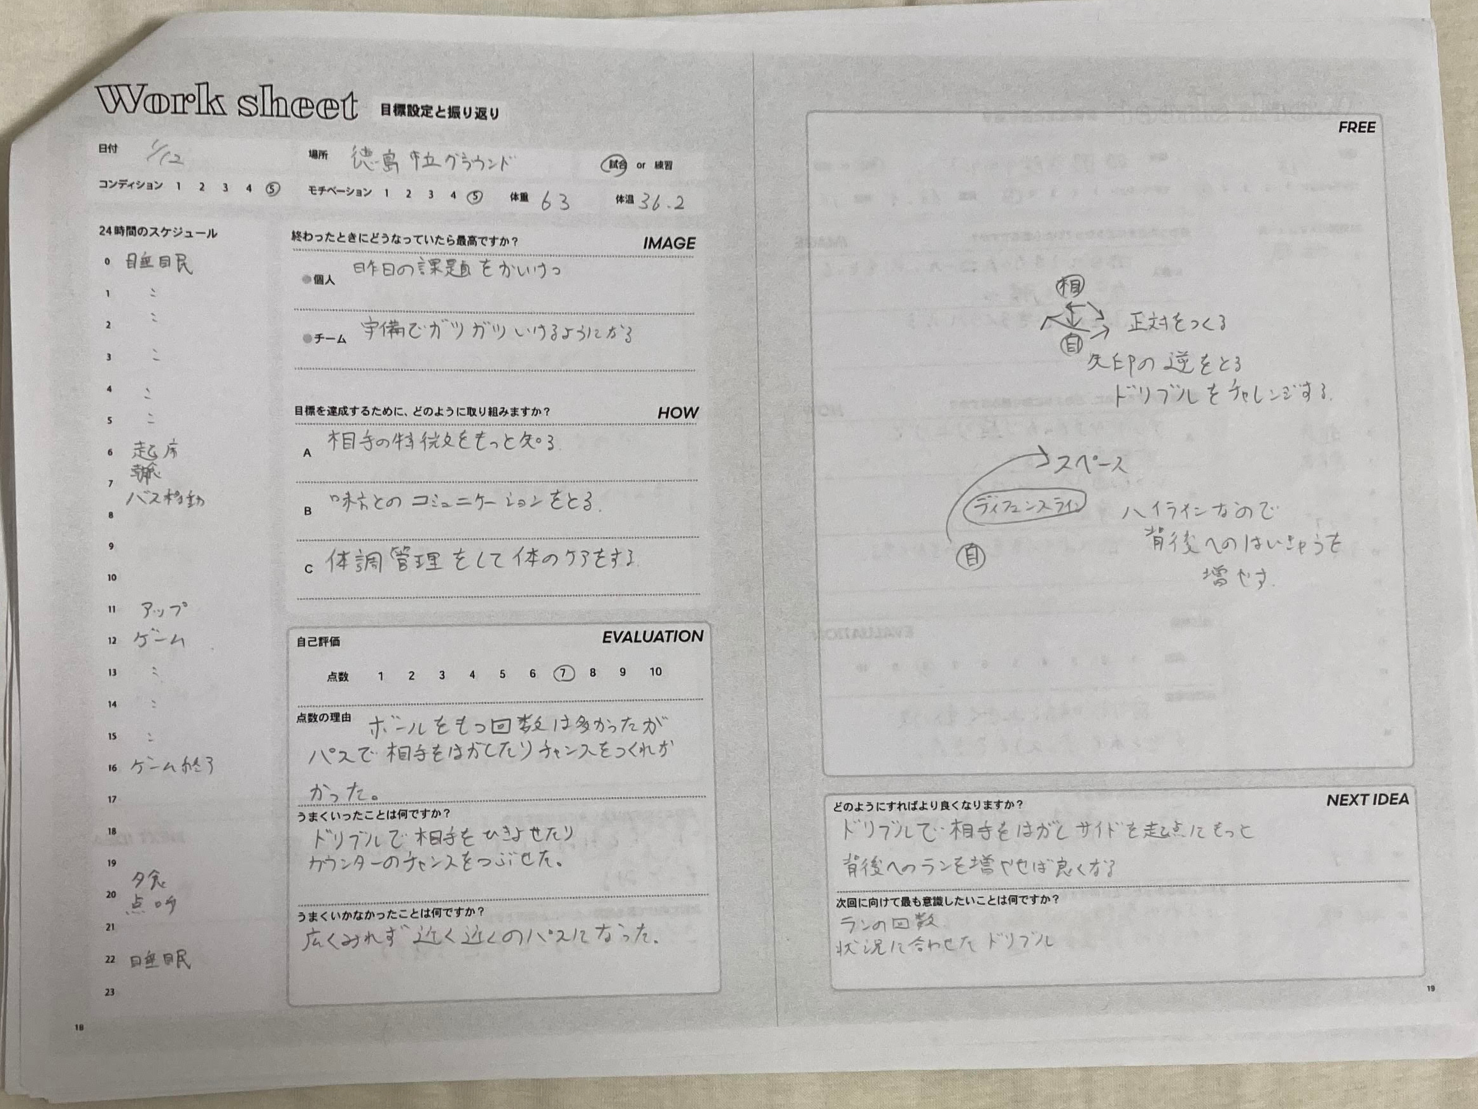 Work sheet 目標設定と振り返り
日付 1/12
場所 徳島市立グラウンド
試合 or 練習
コンディション 1 2 3 4 5
モチベーション 1 2 3 4 5
体重 63
体温 36.2
24時間のスケジュール
0 睡眠
1 〃
2 〃
3 〃
4 〃
5 〃
6 起床
7
バス移動
8
9
10
11 アップ
12 ゲーム
13 〃
14 〃
15 〃
16 ゲーム終了
17
18
19
夕食
20 点呼
21
22 睡眠
23
終わったときにどうなっていたら最高ですか? IMAGE
●個人 昨日の課題をかいけつ
●チーム 守備でガツガツいけるようになる
目標を達成するために、どのように取り組みますか? HOW
A 相手の特徴をもっと知る
B 味方とのコミュニケーションをとる.
C 体調管理をして体のケアをする
自己評価 EVALUATION
点数 1 2 3 4 5 6 7 8 9 10
点数の理由 ボールをもつ回数は多かったが
パスで相手をはがしたりチャンスをつくれな
かった。
うまくいったことは何ですか?
ドリブルで相手をひきよせたり
カウンターのチャンスをつぶせた。
うまくいかなかったことは何ですか?
広くみれず近く近くのパスになった.
18
FREE
相
自
正対をつくる
矢印の逆をとる
ドリブルをチャレンジする.
スペース
ディフェンスライン
自
ハイラインなので
背後へのはいきゅうを
増やす.
どのようにすればより良くなりますか? NEXT IDEA
ドリブルで相手をはがしサイドを起点にもっと
背後へのランを増やせば良くなる
次回に向けて最も意識したいことは何ですか?
ランの回数
状況に合わせたドリブル
19